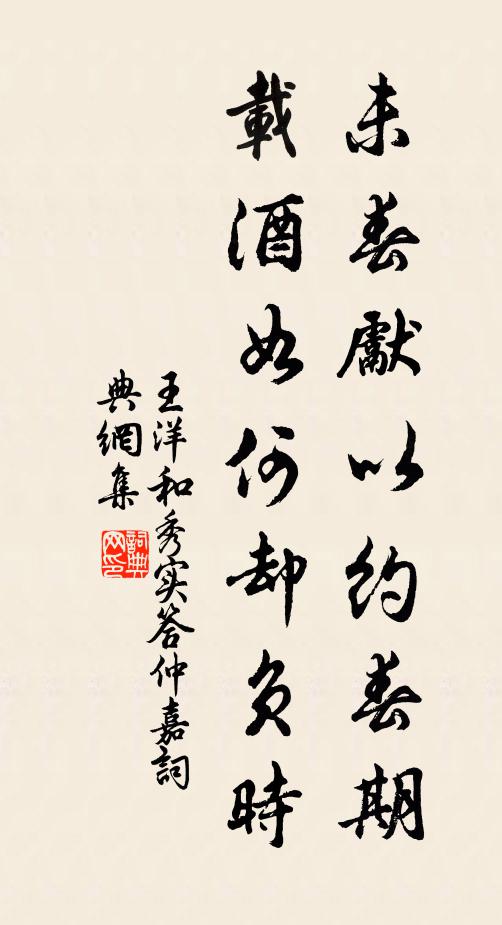 未春獻以約春期
載酒如何却負時
王洋和秀实答仲嘉詞
典網集
詞典
网印